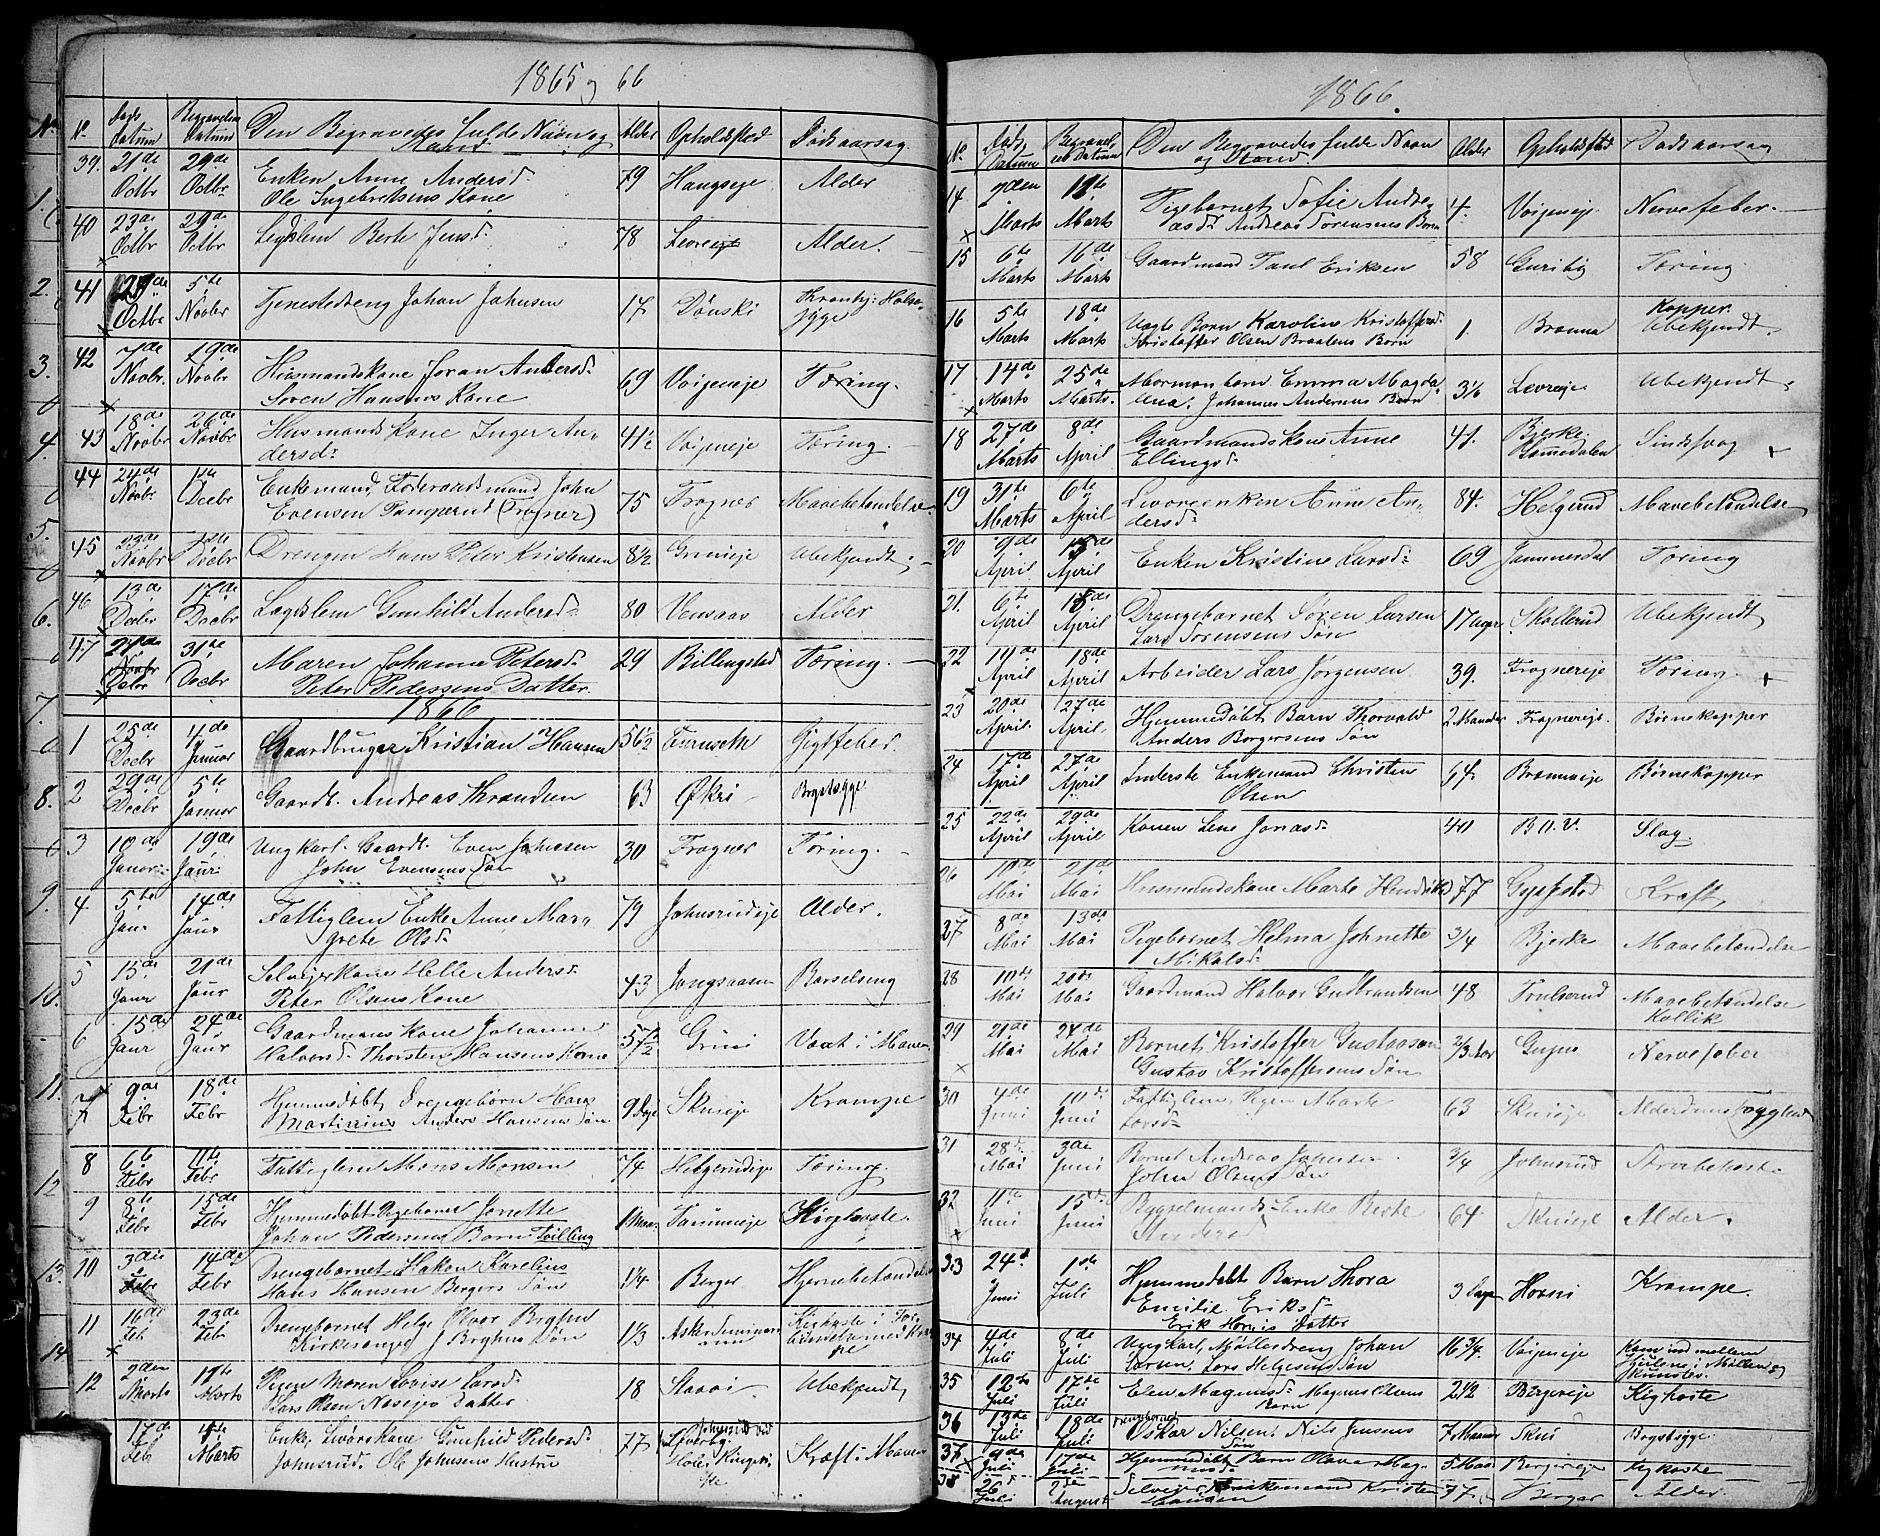 1865 og 66
No. Døds Datum Begravelses Datum Den Begravedes fulde Navn og Stand Alder Opholdssted Dødsaarsag.
39. 21de Octbr 29de Octbr Enken Anne Andersd. 79 Haugseje Alder
Ole Ingebretsens Kone
40 23de Octbr 29de Octbr Legdslem Berte Jensd. 78 Levreje Alder.
41 29de Octbr 5te Novbr Tjenestedreng Johan Johnsen 17 Dønski
42 7de Novbr. 19de Novbr Husmandskone Joran Andersd. 69 Voijeneje Tæring.
Søren Hansens Kone
43 18de Novbr 26de Novbr Husmands Kone Inger An- 41½ Voijeneje Tæring.
dersd:
44 24de Novbr Decbr Enkemand, Føderaadsmand John 75 Frogner Mavebetændelse.
Evensen Tangerud (Frogner)
45 23de Novbr Decbr Drengen Hans Peter Kristensen 8½ Grinieje Ubekjendt
46 13de Decbr 17de Decbr Lægdslem Gunhild Andersd. 80 Vensaas Alder
47 21de Decbr 31te Decbr Maren Johanne Petersd. 29 Billingstad Tæring.
Peter Pedersens Datter.
1866
1 25de Decbr 4de Januar Gaardbruger Kristian Hansen 56½ Furuseth Gigtfeber.
2 29de Decbr 5te Januar Gaardb. Andreas Thrandsen 63 Økri Brystsyge
3 10de Januar 19de Januar Ungkarl. Gaardb. Even Johnsen 30 Frogner Tæring.
John Evensens Søn
4. 5te Janr 14de Janr Fattiglem Enke Anne Mar- 79 Johnsrudeje Alder.
grete Olsd.
5 15de Janr 21de Janr Selvejerkone Helle Andersd. 43 Jongsaasen Barselseng
Peter Olsens Kone
6 15de Janr 24de Janr Gaardmans Kone Johanne 57½ Grini Vaxt i Maven.
Halvorsd. Thorsten Hansens Kone
7 9de Febr 18de Febr Hjemmedøbt Drengebørn Hans 9 Dge Skuieje Krampe
Martinius Anders Hansens Søn
8 6te Febr 11te Febr Fattiglem Mons Monsen 74 Helgerudeje Tæring
9 8te Febr 15de Febr Hjemmedøbt Pigebarnet Jonette 1 Maan. Tanumeje Kighoste.
Johan Pedersens Barn Tvilling
10 3die Febr 14de Febr Drengebarnet Haken Karelius 1¼ Berger Hjernebetændelse
Hans Hansen Bergers Søn
11 16de Feb 23de Febr Drengebarnet Helge Olvar Bryhn 1⅓ Askerseminarium
Kirkesanger J Bryhns Søn
12 2den Marts Marts Pigen Maren Lovise Larsd. 18 Stavei Ubekjendt
Lars Olsen Næsejes Datter
17de Feb Marts Enke, Livørskone Gunhild Pedersd. 77 Johnsrud ved Kræft i Maven
Johnsrud. Ole Johnsens Hustru
1866.
No. Døds Datum Begravelses Datum Den Begravedes fulde Navn og Stand Alder Opholdssted Dødsaarsag
14 2den Marts 11te Marts Pigebarnet Sofie Andre- 4. Voijeneje. Nervefeber.
asd. Andreas Sorensens Barn
15 6te Marts 16de Marts Gaardmand Paul Eriksen 58 Guriby Tæring.
16 5te Marts 18de Marts Uægte Barn Karoline Kristoffersd. 1. Branna Kopper. Ubekjendt.
Kristoffer Olsen Braatens Barn
17 14de Marts 25de Marts. Mormonbarn Emma Magda- 3⅙ Levreje Ubekjendt.
lena. Johannes Andersens Barn
18 27de Marts 8de April Gaardmandskone Anne 41. Bjerke, Lomedalen Sindssvag +
Ellingsd.
19 31te Marts 6te April Livøreenken Anne An- 84. Helgerud Mavebetændelse
dersd:
20 9de April April Enken Kristine Larsd: 69 Jammerdal Tæring
21. 6te April April Drengebarnet Søren Larsen 17 Uger Skollerud Ubekjendt
Lars Sorensens Søn
22 14de April 18de April Arbeider Lars Jørgensen 39. Frognereje Tæring. +
23 20de April 27de April Hjemmedøbt Barn Thorvald 2 Maaneder Frognereje. Børnekopper
Anders Borgersens Søn
24 17de April 27de April Inderste Enkemand Christen 64. Brannaeje Børnekopper
Olsen
25 22de April 29de April Konen Lene Jonasd. 40 B.n.V. Slag.
26 10de Mai 21de Mai Husmandskone Marte Henriksd. 77 Gypestad Kræft,
27 8de Mai 13de Mai Pigebarnet Helma Johnette ¾ Bjerke Mavebetændelse
Mikalsd.
28 10de Mai 20de Mai Gaardmand Halvor Gudbrandsen 48 Trulserud Mavebetændelse
Kollik
29 21de Mai 24de Mai Barnet Kristoffer Gustavsen ⅔ Aar Gupu Nervefeber
Gustav Kristoffersens Søn
30 4de Juni 10de Juni Fattiglem Pigen Marte 63 Skuieje
Larsd.
31 28de Mai 3die Juni Barnet Andreas Johnsen. ¾ Johnsrud Strubehoste.
John Olsens Søn
32 11te Juni 15de Juni Bygselmands Enke Berte 64 Skuieje Alder.
Andersd.
33 24de Juni 1ste Juli Hjemmedøbt Barn Thora 3 Dage Horni Krampe.
Emilie. Eriksd.
Erik Hornis Datter
34 4de Juli 8de Juli Ungkarl, Møllerdreng Johan 16¾. Voijeneje Kom ind mellem
Larsen, Lars Helgesens Søn Hjulene i Møllen og
35 12te Juli 17de Juli Elen Magnusd. Magnus Olsens 2½ Bergereje Kighoste
Barn
36 13de Juli 18de Juli Drengebarnet Oskar Nilsen, Nils Jensens 7 Maaneder Skui Brystsyge.
Søn
37 9de Juli 17de Juli Hjemmedøbt Barn Olava Mag- 5 Maan Bergereje Kighoste
nusd.
38 26de Juli 2de August Selvejer Enkemand Kristen 77. Berger Alder.
Hansen